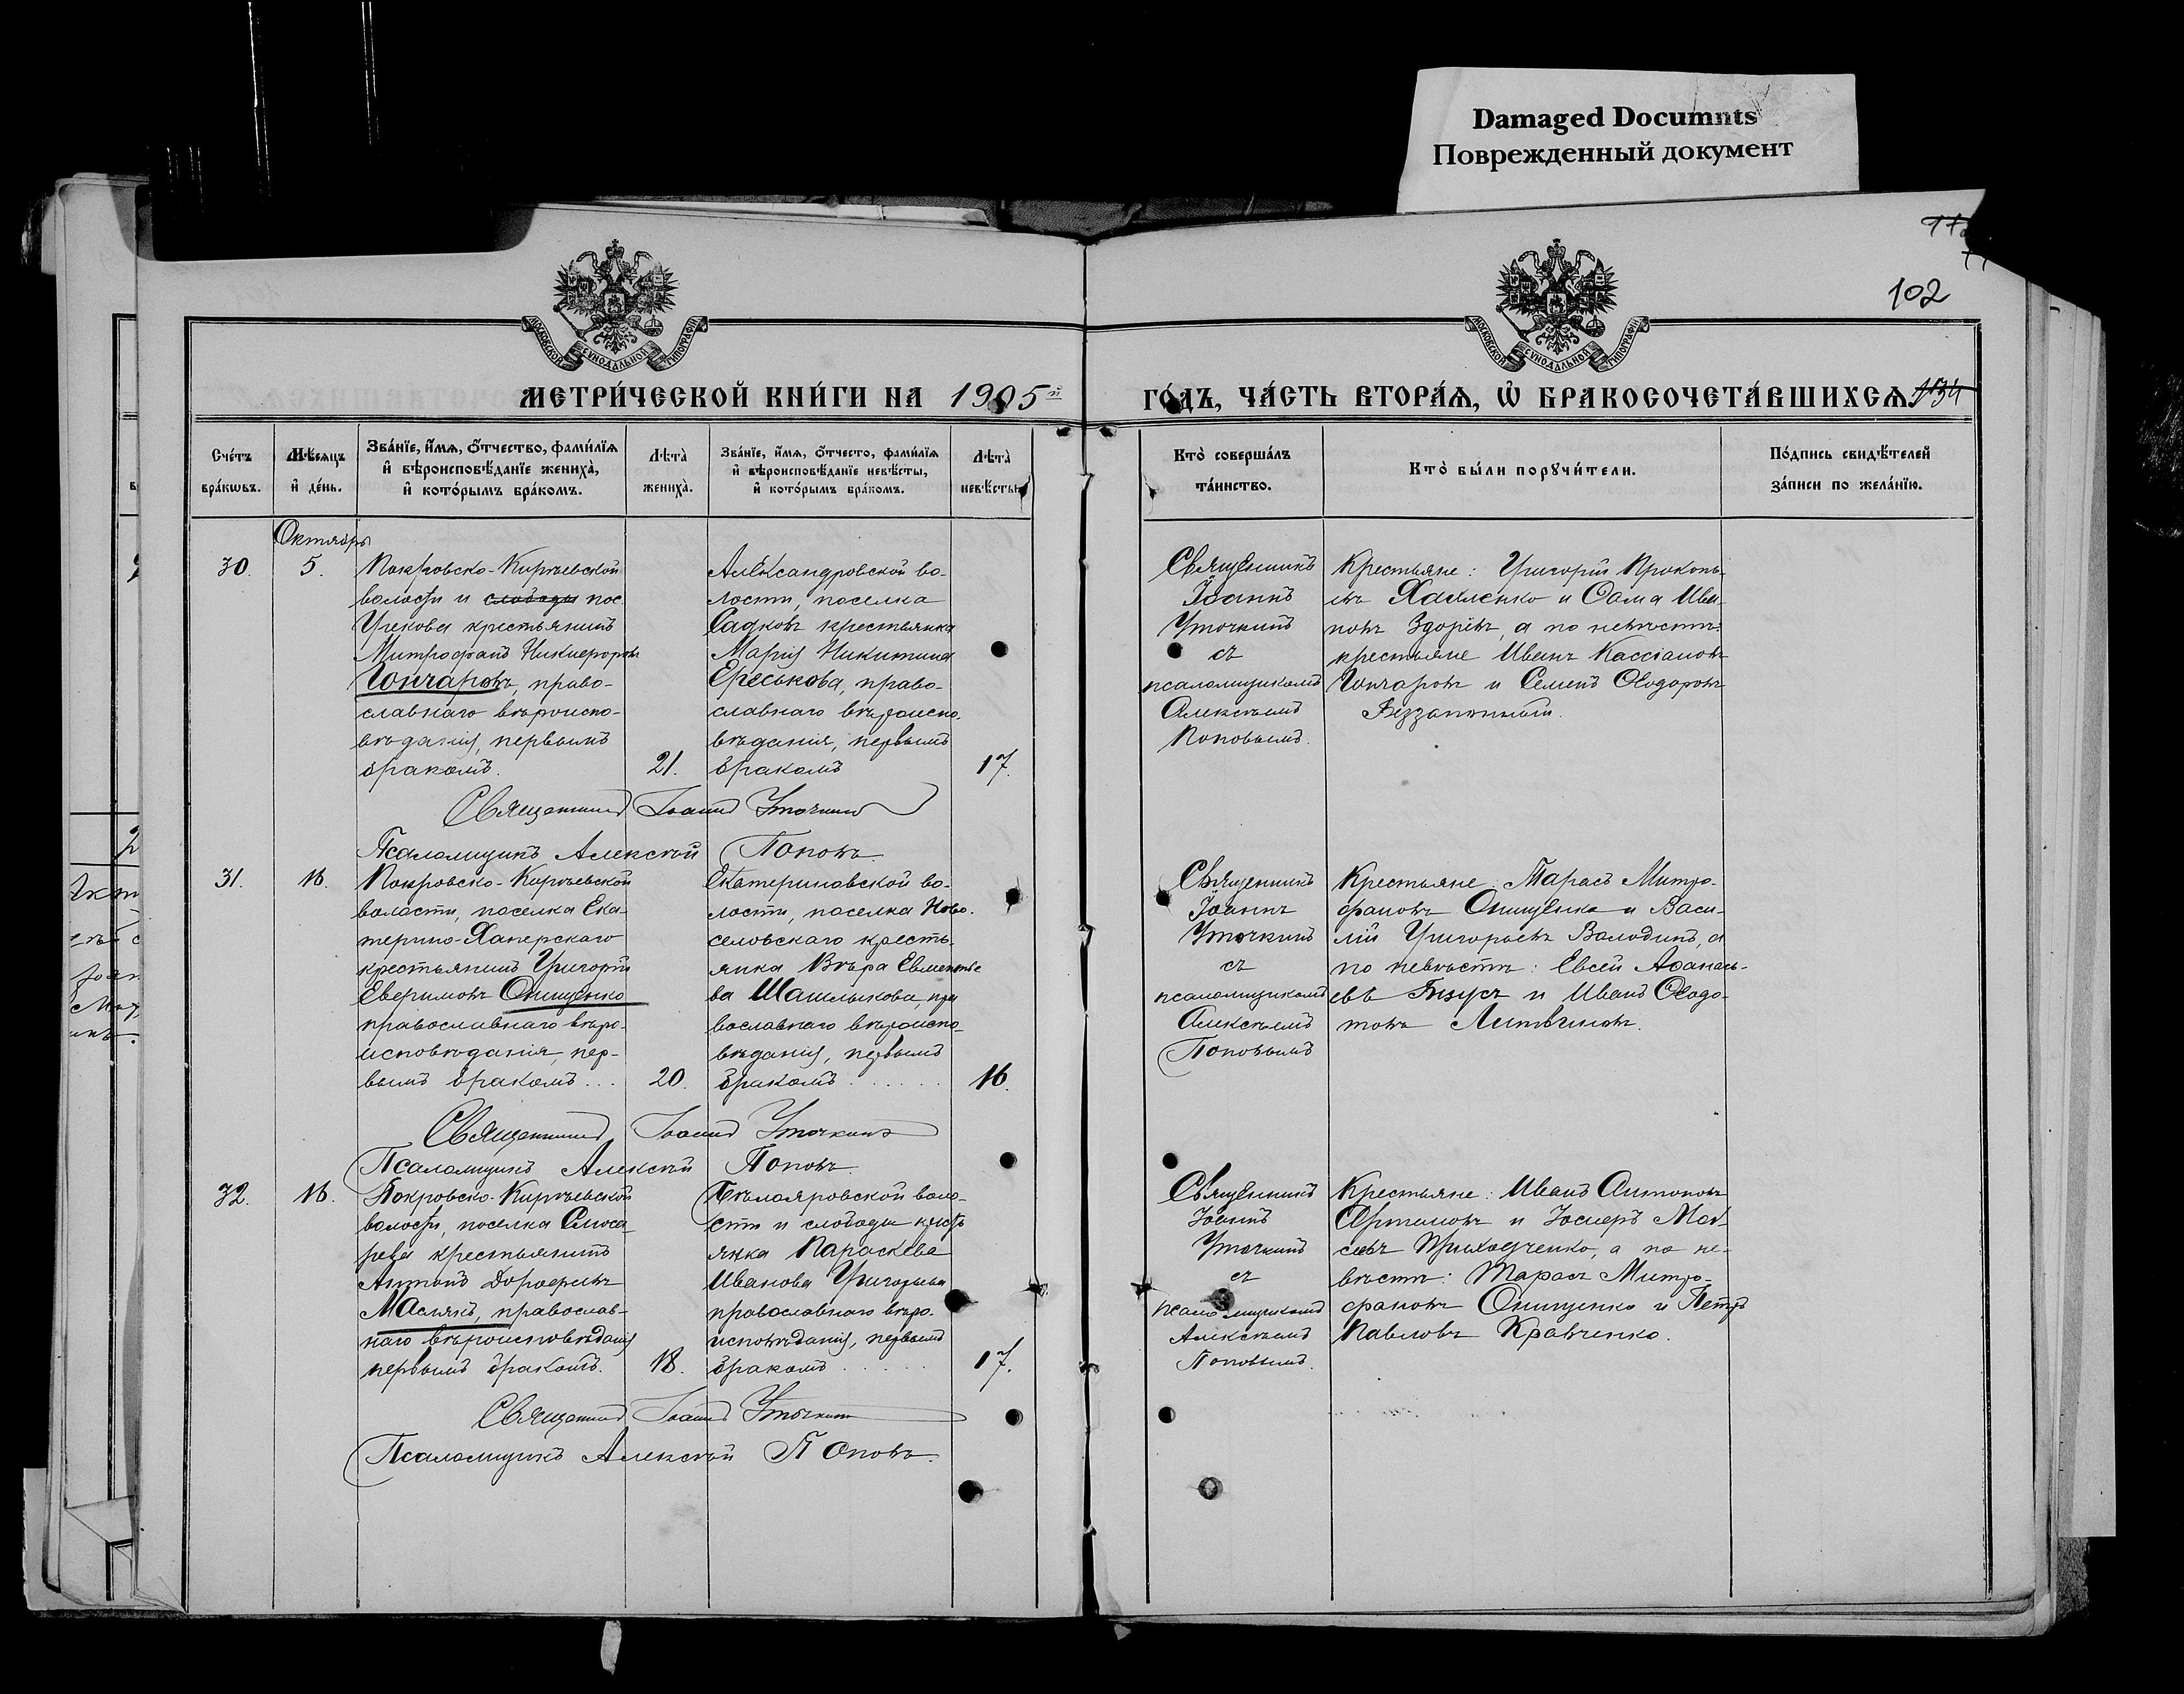 Damaged Documnts
Поврежденный документ
102
МОСКОВСКОЙ СУНОДАЛЬНОЙ ТИПОГРАФІИ
МОСКОВСКОЙ СУНОДАЛЬНОЙ ТИПОГРАФІИ
МЕТРИ́ЧЕСКОЙ КНИ́ГИ НА 1905й
ГО́ДЪ, ЧА́СТЬ ВТОРА́Ѧ, Ѡ БРАКОСОЧЕТА́ВШИХСѦ
Сче́тъ бра́кѡвъ.
Мѣ́сяцъ и҆ де́нь.
Зва́нїе, и҆́мѧ, ѻ҆́тчество, фами́лїѧ и҆ вѣроисповѣ́данїе жениха̀, и҆ кото́рымъ бра́комъ.
Лѣта̀ жениха̀.
Зва́нїе, и҆́мѧ, ѻ҆́тчесто, фами́лїѧ и҆ вѣроисповѣ́данїе невѣ́сты, и҆ кото́рымъ бра́комъ.
Лѣта̀ невѣ́сты.
Кто̀ соверша́лъ та́инство.
Кто̀ бы́ли порꙋчи́тели.
По́дпись свидѣ́телей за́писи по жела́нїю.
Октябрь
30.
5.
Покровско-Кирѣевской
волости и слободы пос.
крестьянинъ
Митрофанъ Никифоровъ
Гончаровъ, право-
славнаго вѣроиспо-
вѣданія, первымъ
бракомъ.
21.
Александровской во-
лости, поселка
Садковъ крестьянка
Марія Никитина
Ереськова, право-
славнаго вѣроиспо-
вѣданія, первымъ
бракомъ
17.
Священникъ
Іоаннъ
Уточкинъ
съ
псаломщикомъ
Алексѣемъ
Поповымъ.
Крестьяне: Григорій Прокопь-
евъ и Ѳома Ива-
новъ а по невѣстѣ:
крестьяне Иванъ Кассіановъ
Гончаровъ и Семенъ Ѳеодоровъ
Священникъ Іоаннъ Уточкинъ
Псаломщикъ Алексѣй Поповъ.
31.
16.
Покровско-Кирѣевской
волости, поселка Ека-
терино-Хаперскаго
крестьянинъ Григорій
Онищенко
православнаго вѣро-
исповѣданія, пер-
вымъ бракомъ...
20.
Екатериновской во-
лости, поселка Ново-
селовскаго кресть-
янка Вѣра Евменье
ва Шашлыкова, пра
вославнаго вѣроиспо-
вѣданія, первымъ
бракомъ......
16.
Священникъ
Іоаннъ
Уточкинъ
съ
псаломщикомъ
Алексѣемъ
Поповымъ
Крестьяне Тарасъ Митро-
фановъ Онищенко и Васи-
лій Григорьевъ Володинъ, а
по невѣстѣ: Евсей Аѳанась-
евъ и Иванъ Ѳеодо-
товъ Литвиновъ.
Священникъ Іоаннъ Уточкинъ
Псаломщикъ Алексѣй Поповъ
32.
16.
Покровско-Кирѣевской
волости, поселка Слюса-
рева крестьянинъ
Антонъ Дорофеевъ
Маслякъ, православ-
наго вѣроисповѣданія
первымъ бракомъ.
18.
Бѣлояровской воло-
сти и слободы кресть
янка Параскева
Иванова Григорьева
православнаго вѣро-
исповѣданія, первымъ
бракомъ......
17.
Священникъ
Іоаннъ
Уточкинъ
съ
псаломщикомъ
Алексѣемъ
Поповымъ.
Крестьяне: Иванъ Антоновъ
Артемовъ и Іосифъ Мои-
сеевъ Приходченко, а по не-
вѣстѣ: Тарасъ Митро-
фановъ Онищенко и Петръ
Павловъ Кравченко.
Священникъ Іоаннъ Уточкинъ
Псаломщикъ Алексѣй Поповъ.